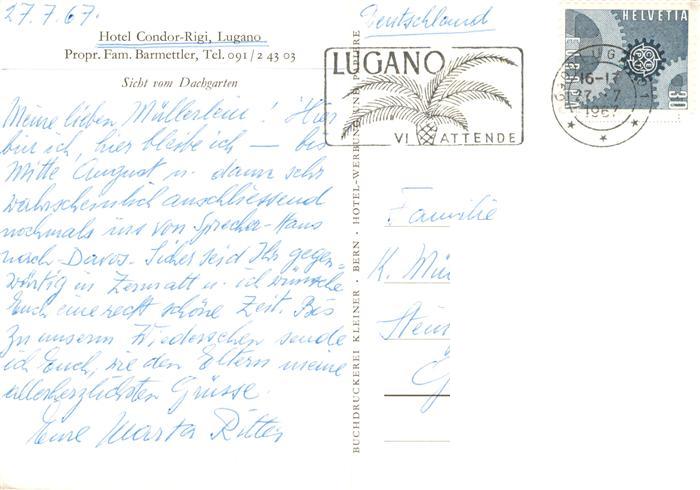 27.7.67.
Hotel Condor-Rigi, Lugano
Propr. Fam. Barmettler, Tel. 091 / 2 43 03
Sicht vom Dachgarten
Meine lieben Müllerlein! Hier
bin ich, hier bleibe ich — bis
Mitte August u. dann sehr
wahrscheinlich anschliessend
nochmals ins von Sprecher-Haus
nach Davos. Sicher seid Ihr gegen=
wärtig in Zermatt u. ich wünsche
Euch eine recht schöne Zeit. Bis
zu unserm Wiedersehen sende
ich Euch, wie den Eltern meine
allerherzlichsten Grüsse.
Eure Marta Ritter
BUCHDRUCKEREI KLEINER · BERN · HOTEL-WERBUNG
Deutschland
LUGANO
VI ATTENDE
HELVETIA
30
16-17
27. 7
1967
Familie
K. Mü